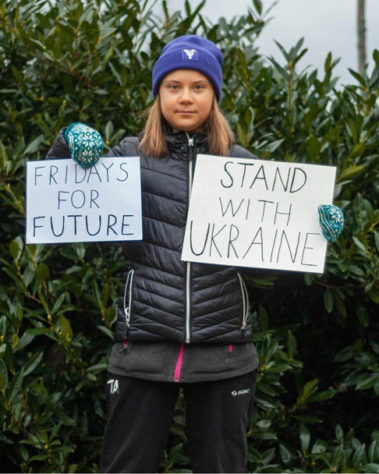 FRIDAYS
FOR
FUTURE
STAND
WITH
UKRAINE